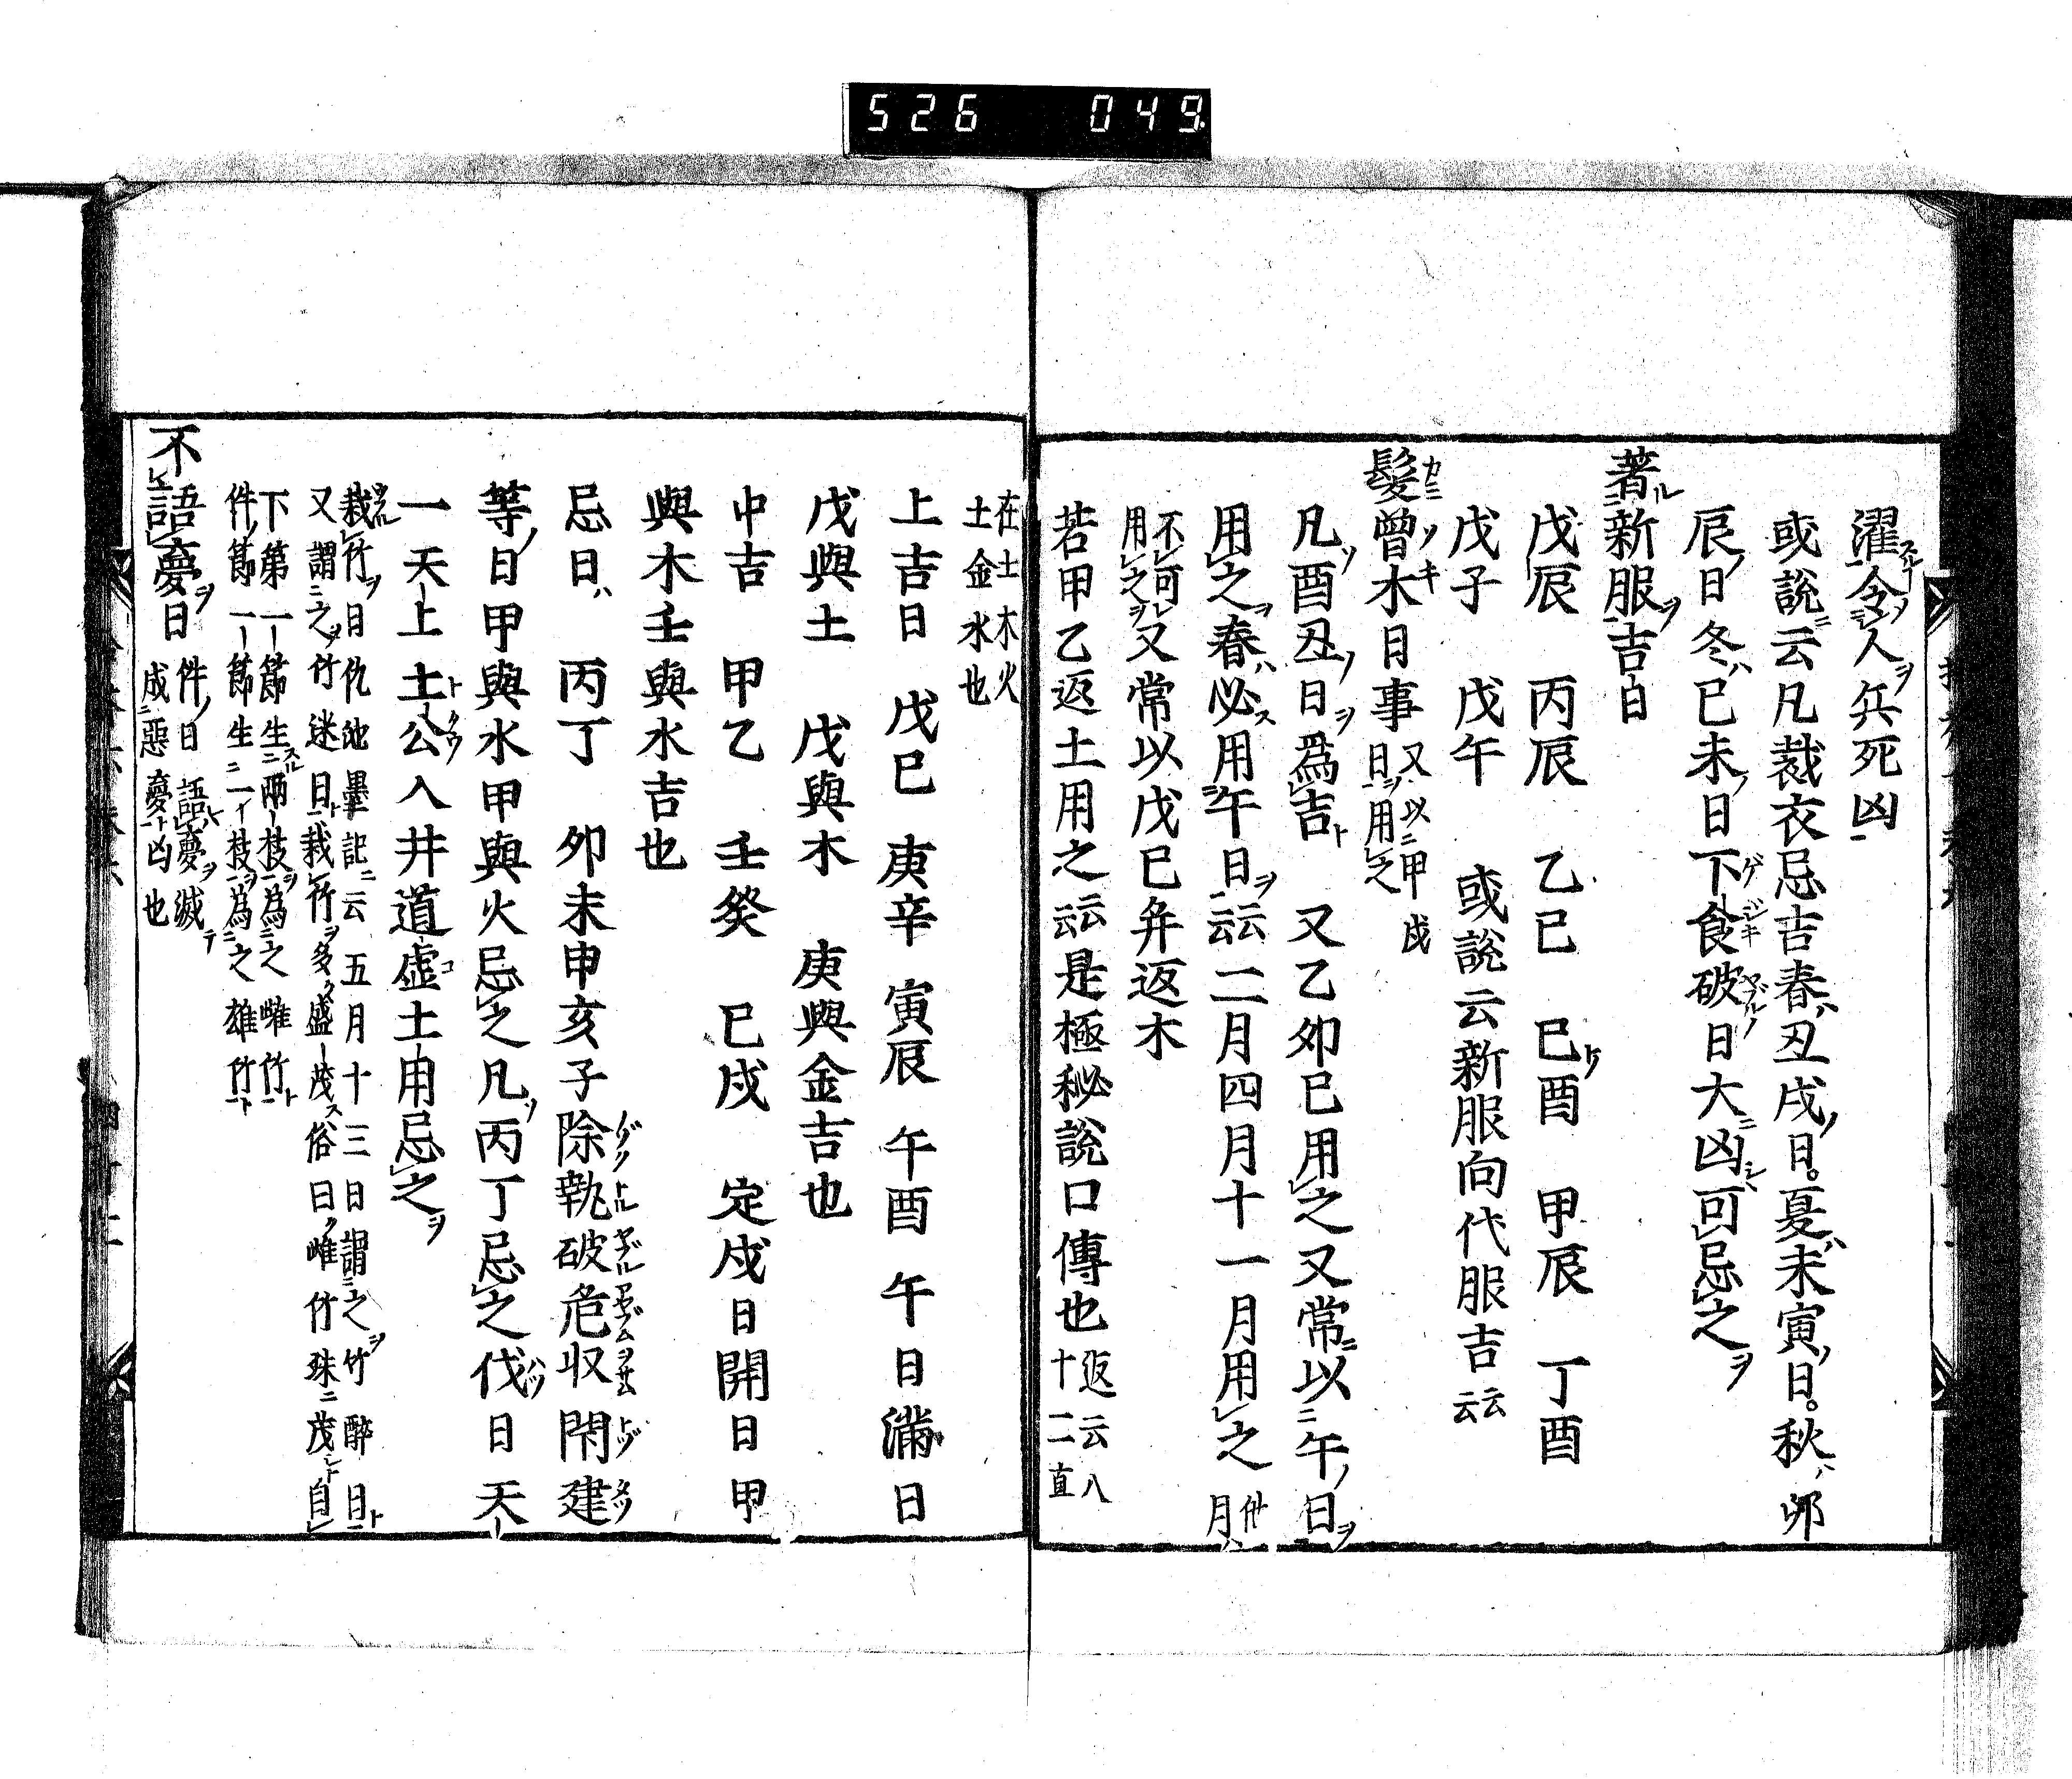 526 049
濯令人兵死凶
或説云凡裁衣忌吉春丑戌日。夏未寅日。秋卯
辰日冬巳未日下食破日大凶可忌之
著新服吉日
戊辰 丙辰 乙巳 己酉 甲辰 丁酉
戊子 戊午 或説云新服向代服吉云云
髮曾木日事又以甲戌日用之
凡酉丑日爲吉 又乙卯巳用之又常以午日
用之春必用午日云云二月四月十一月用之 卅月
不可用之又常以戊巳并返木
若甲乙返土用之云云是極秘説口傳也返云八十二直
在土木火土金水也
上吉日 戊巳 庚辛 寅辰 午酉 午日滿日
戊與土 戊與木 庚與金吉也
中吉 甲乙 壬癸 巳戌 定成日開日甲
與木壬與水吉也
忌日 丙丁 卯未申亥子除執破危収閇建
等日甲與水甲與火忌之凡丙丁忌之伐日天
一天上土公入井道虚土用忌之
栽竹日仇池筆記云五月十三日謂之竹醉日
又謂之竹迷日栽竹多盛茂俗曰雌竹殊茂自
下第一節生兩枝爲之雌竹
件節一節生一枝爲之雄竹
不語夢日件日語夢滅成惡夢凶也